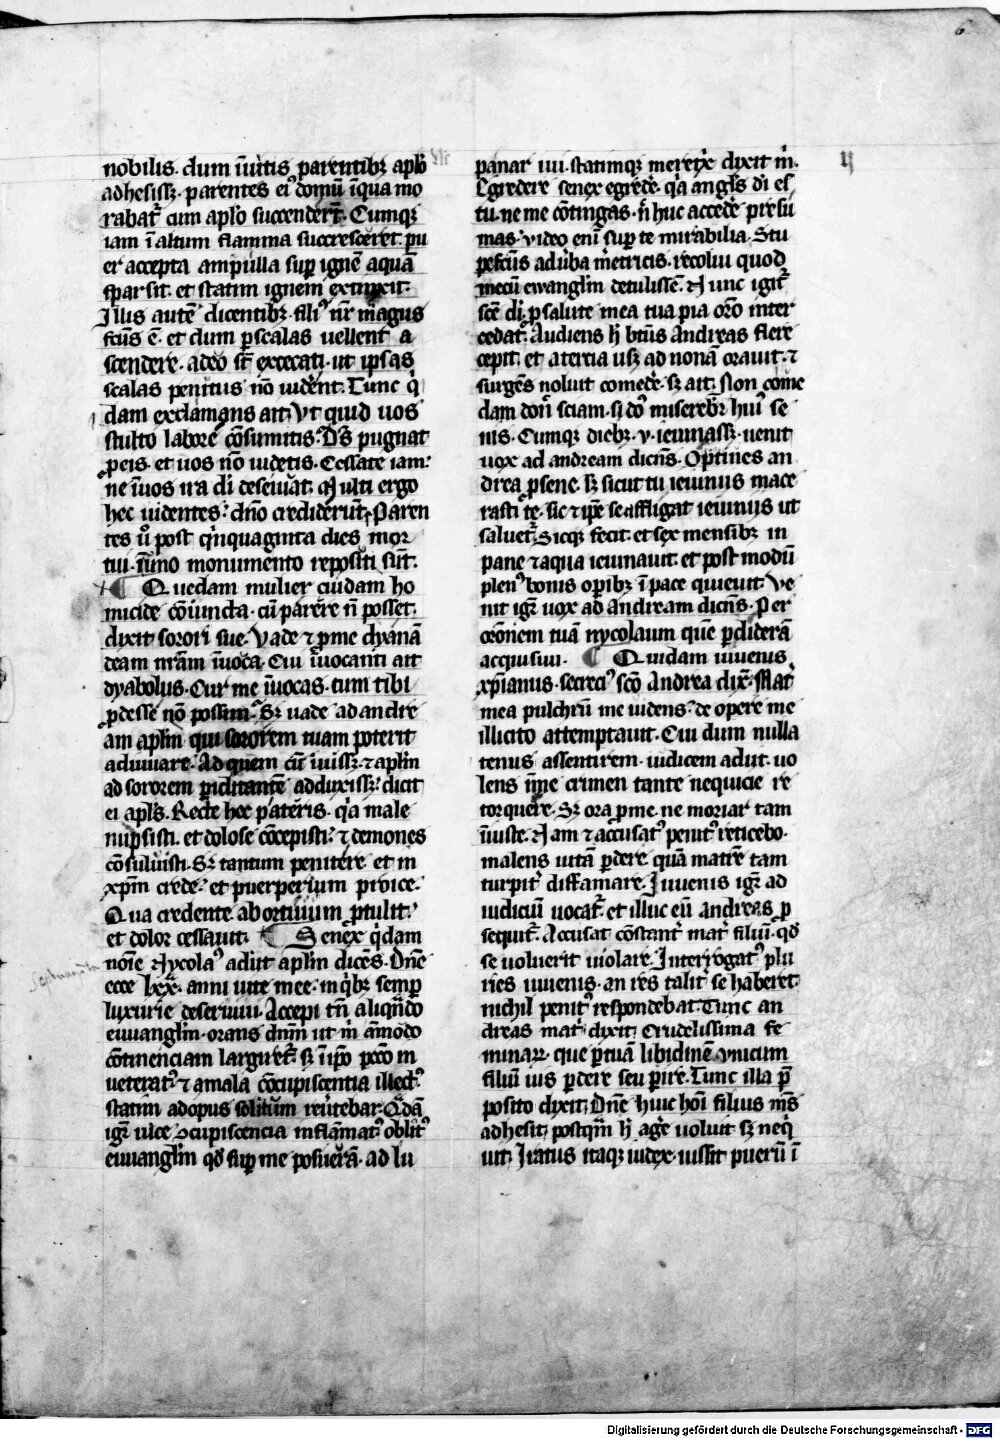 6
nobilis. dum īuitis parentibꝫ aplo
adhesissꝫ. parentes eiꝰ domū īqua mo
rabat᷑ cum aplo succendert᷑. Cumqꝫ
iam ī altum flamma succresceret. pu
er accepta ampulla sup ignē aquā
sparsit. et statim ignem extinxit.
Illis autē dicentibꝫ. filiꝰ nr̄ magus
fcūs ē. et dum p scalas uellent a
scendere. adeo st̄ excecati. ut ipsas
scalas penitus nō uidēnt. Tunc q̇
dam exclamans ait. Vt quid uos
stulto labore cōsumitis. D̄s pugnat
p eis. et uos nō uidetis. Cessate iam.
ne ī uos ira di deseuiat. Multi ergo
hec uidentes. dn̄o crediderūt. Paren
tes ū post q̇nquaginta dies mor
tui. ī uno monumento repositi sūt.
¶ Quedam mulier cuidam ho
micide cōiuncta. cū parere n̄ posset.
dixit sorori sue. Vade ⁊ p me dyanā
deam nr̄am īuoca. Cui īuocanti ait
dyabolus. Cur me īuocas. cum tibi
pdesse nō possim. Sꝫ uade ad andre
am aplm qui sororem tuam poterit
adiuuare. Ad quem cū iuissꝫ. ⁊ aplm
ad sororem piclitantē adduxissꝫ. dicit
ei apls. Recte hec pateris. q̇a male
nupsisti. et dolose cōcepisti. ⁊ demones
cōsuluisti. Sꝫ tantum penitere et in
xp̄m crede. et puerperium proice.
Qua credente abortiuum ptulit.
et dolor cessauit. ¶ Senex q̇dam
noīe Nycolaꝰ adiit aplm dicēs. Dn̄e
ecce lxx. anni uite mee. in q̇bꝫ semp
luxurie deseruiui. Accepi tn̄ aliqn̄do
euuanglm. orans dnm ut m̄ āmodo
cōtinenciam largiret᷑. sꝫ ī ipō pcc̄o in
ueteratꝰ ⁊ a mala cōcupiscentia illectꝰ
statim ad opus solitum reūtebar. Q̇dā
igr̄ uice ꝯcupiscencia inflāmatꝰ oblitꝰ
euuanglm qd̄ sup me posuerā. ad lu
ij
panar iui. statimqꝫ meretrix dixit m̄.
Egredere senex egrede. q̇a angl̄s di es
tu. ne me cōtingas. n̄ huc accedē presu
mas. video enī sup te mirabilia. Stu
pefcūs ad ūba m̄etricis. recolui quod
mecū ewanglm detulissē. Nunc igit᷑
scē di. p salute mea tua pia orō inter
cedat. Audiens h̄ btūs Andreas flere
cepit. et a tercia usqꝫ ad nonā orauit. ⁊
surgēs noluit comedē. sꝫ ait. Non come
dam donc̄ sciam. si dōs miserebr̄ huiꝰ se
nis. Cumqꝫ diebꝫ .v. ieiunassꝫ. uenit
uox ad andream dicn̄s. Optines an
drea p sene. sꝫ sicut tu ieiuniis mace
rasti te. sic ⁊ ipe se affligat ieiuniis ut
saluet᷑. Sicqꝫ fecit. et sex mensibꝫ in
pane ⁊ aqua ieiunauit. et post modū
plenꝰ bonis opibꝫ ī pace quieuit. Ve
nit igr̄ uox ad Andream dicn̄s. Per
orōnem tuā nycolaum quē pdiderā
acquisiui. ¶ Quidam iuuenis
xp̄ianus. secreciꝰ scō Andrea dix̄. Mat᷑
mea pulchrū me uidens. de opere me
illicito attemptauit. Cui dum nulla
tenus assentirem. iudicem adiit. uo
lens ī me crimen tante nequicie re
torquere. Sꝫ ora p me. ne moriar tam
īiuste. Nam ⁊ accusatꝰ penitꝰ reticebo.
malens uitā pdere. quā matrē tam
turpit᷑ diffamare. Iuuenis igr̄ ad
iudiciū uocat᷑. et illuc eū andreas p
sequit᷑. Accusat cōstant᷑ mat᷑ filiū. qd̄
se uoluerit uiolare. Interrogatꝰ plu
ries iuuenis. an res talit᷑ se haberet.
nichil penitꝰ respondebat. Tunc an
dreas mat᷑ dixit. Crudelissima fe
minaꝝ. que p tuā libidinē vnicum
filiū uis pdere seu pire. Tunc illa p̄
posito dixit. Dn̄e huic hoī filius mꝰs
adhesit. postqm̄ h̄ age uoluit sꝫ neq̇
uit. Iratus itaqꝫ iudex. iussit puerū ī
Digitalisierung gefördert durch die Deutsche Forschungsgemeinschaft - DFG